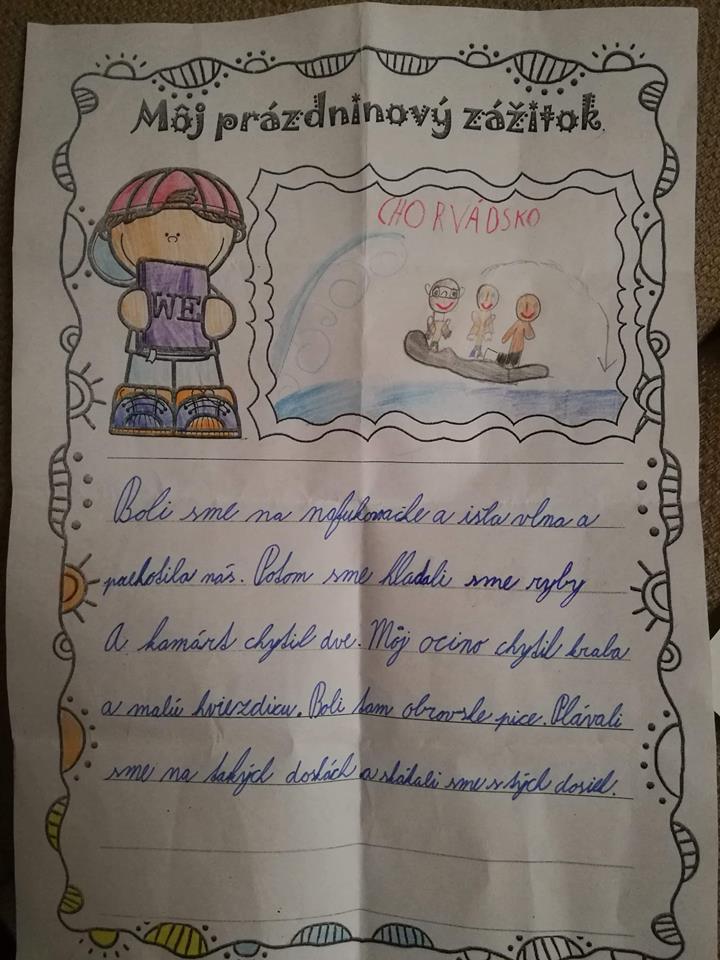 Môj prázdninový zážitok
CHORVÁDSKO
WE
Boli sme na nafukovačke a išla vlna a
prekotila nás. Potom sme hladali sme ryby
A kamárt chytil dve. Môj ocino chytil kraba
a malú hviezdicu. Boli tam obrovske pice. Plávali
sme na takých doskách a skákali sme s tých dosiek.